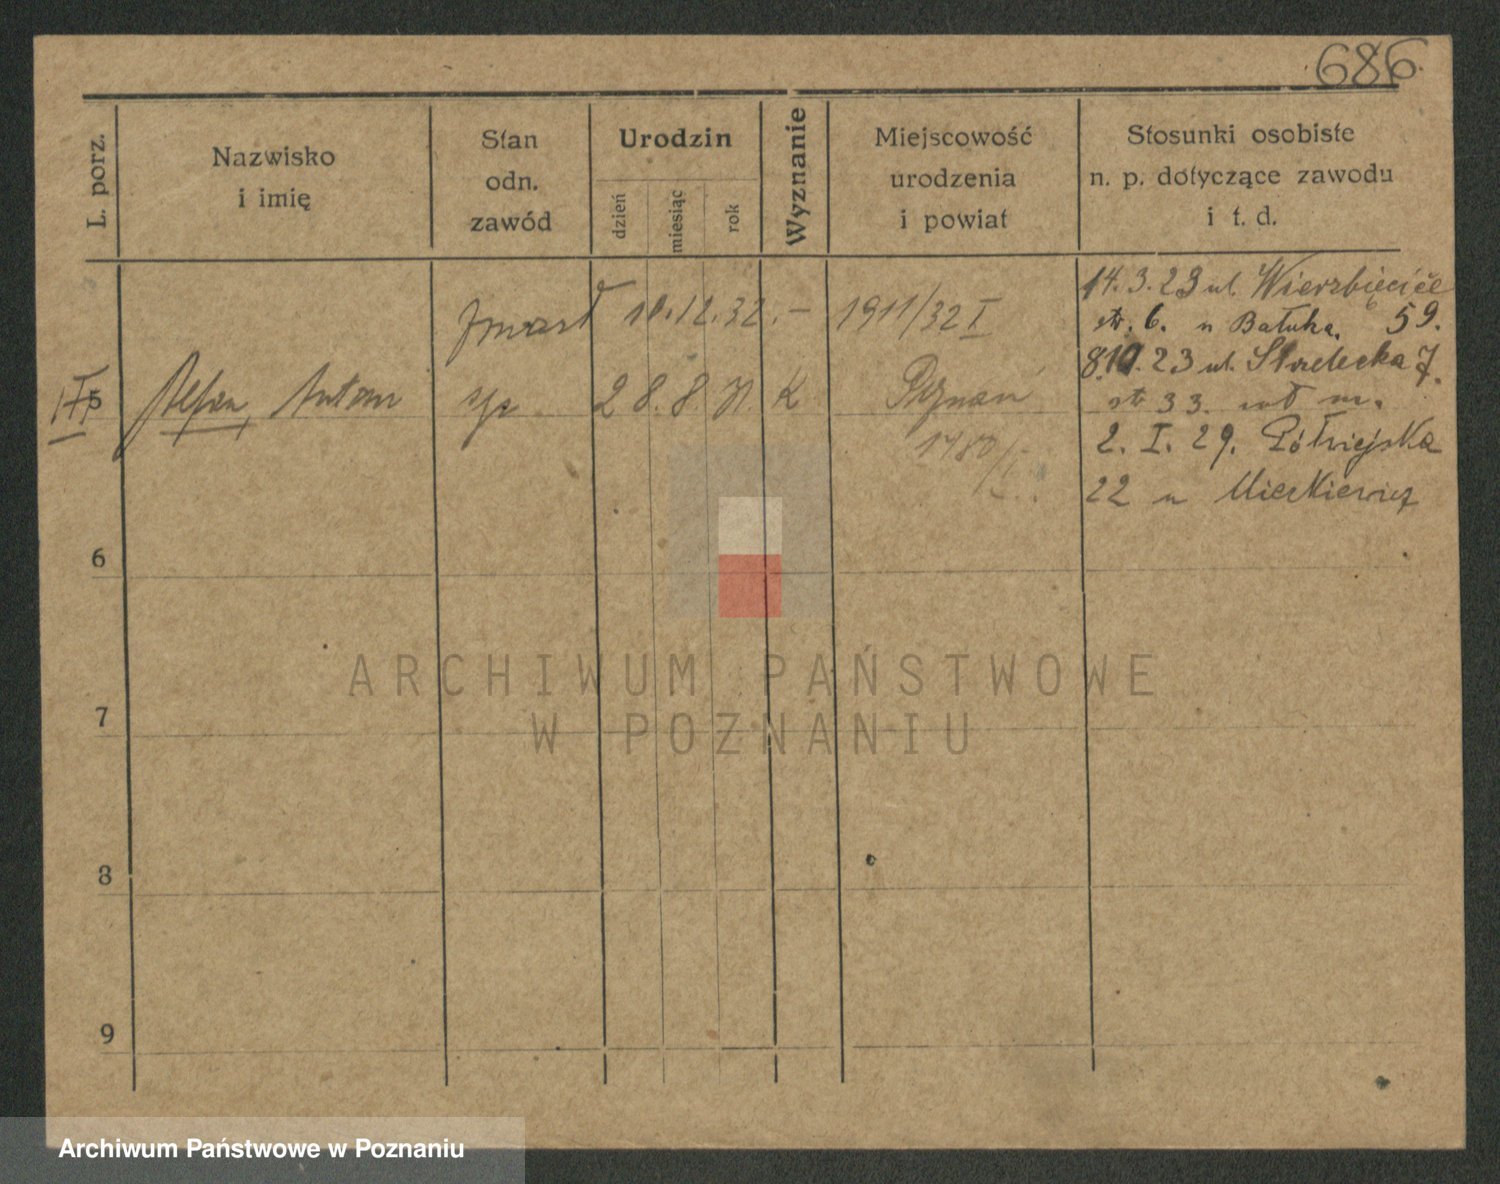 686
L. porz.
Nazwisko
i imię
Stan
odn.
zawód
Urodzin
dzień
miesiąc
rok
Wyznanie
Miejscowość
urodzenia
i powiat
Stosunki osobiste
n. p. dotyczące zawodu
i t. d.
14.3.23 ul. Wierzbięcice
zmarł 10.12.32. - 1911/32 I
str. 6. u Batuka. 59.
8.10.23 ul. Strzelecka 7.
5 Antoni 28.8. K Poznań
str 33. m.
1480/I
2. I. 29. Półwiejska
22 u Mickiewicz
6
7
8
9
ARCHIWUM PAŃSTWOWE
W POZNANIU
Archiwum Państwowe w Poznaniu